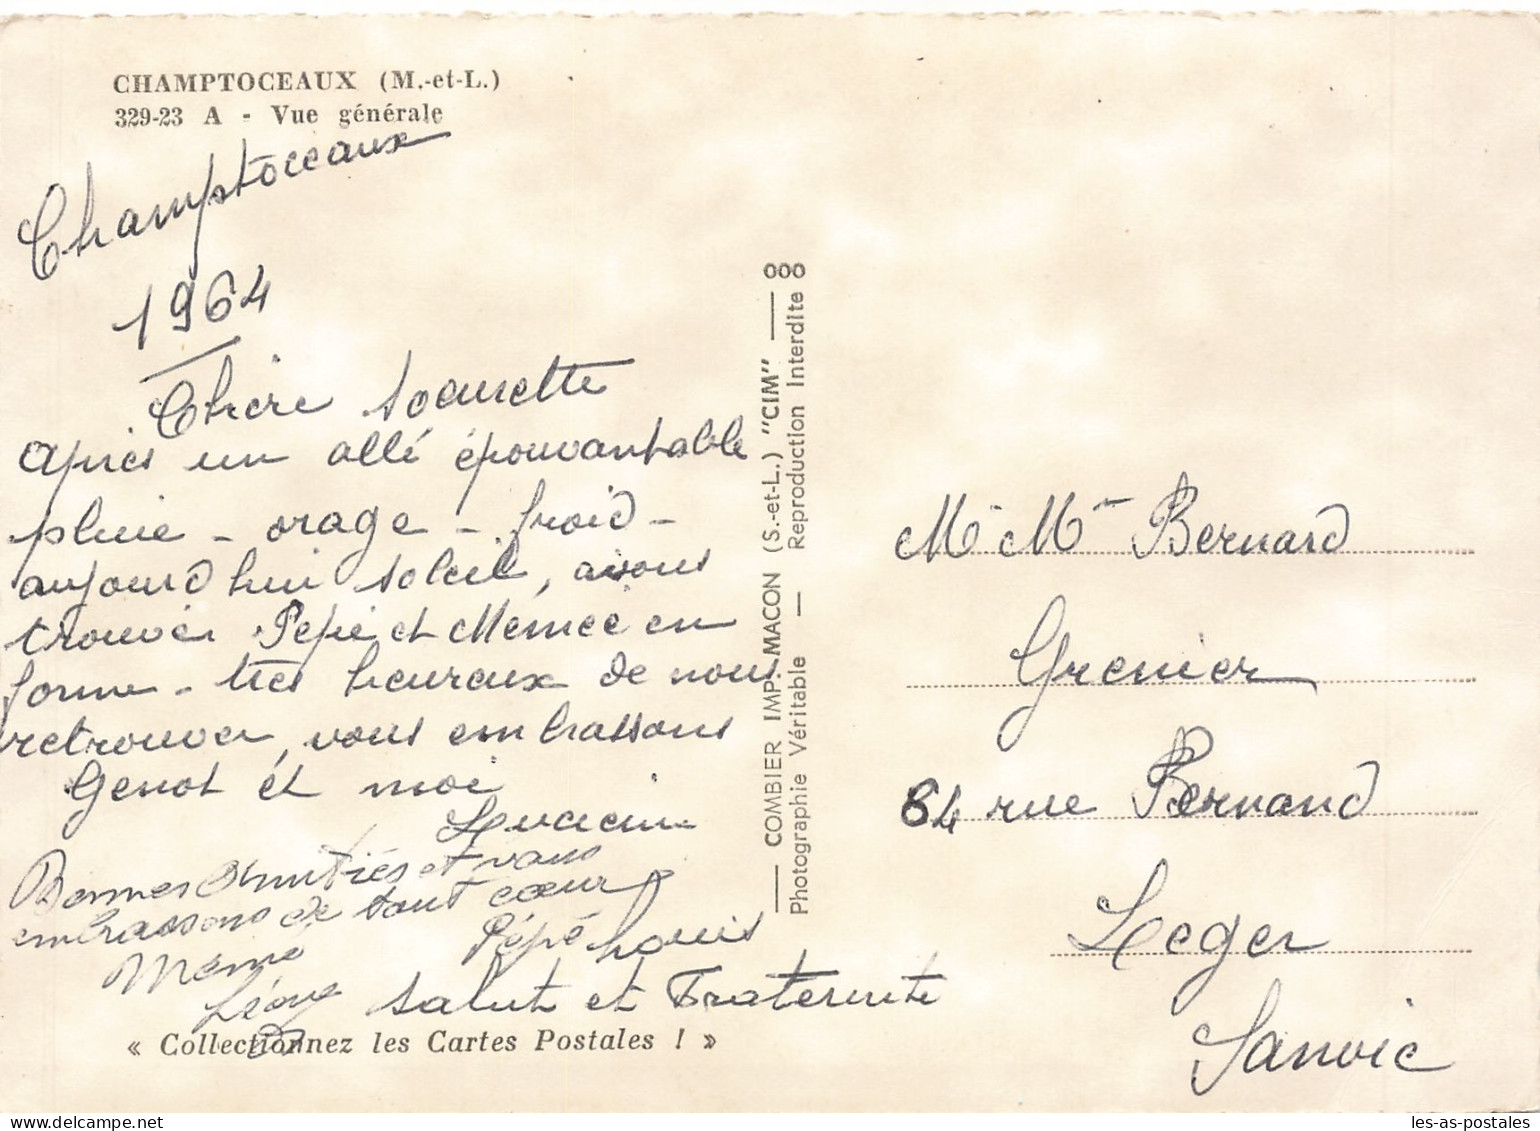 CHAMPTOCEAUX (M.-et-L.)
329-23 A - Vue générale
Champtoceaux
1964
Chère soeurette
Après un allé épouvantable
pluie - orage - froid -
aujourd hui soleil, avons
trouver Pépé et Mémée en
forme - très heureux de nous
retrouver, vous embrassons
Genot et moi
Bonnes Amitiés et vous
embrassons de tout cœur
Mémé Pépé Louis
Salut et Fraternité
« Collectionnez les Cartes Postales ! »
COMBIER IMP. MACON (S.-et-L.) "CIM"
Photographie Véritable — Reproduction Interdite
000
Mr Mme Bernard
Grenier
64 rue Bernard
Leger
Sanvic
les-as-postales